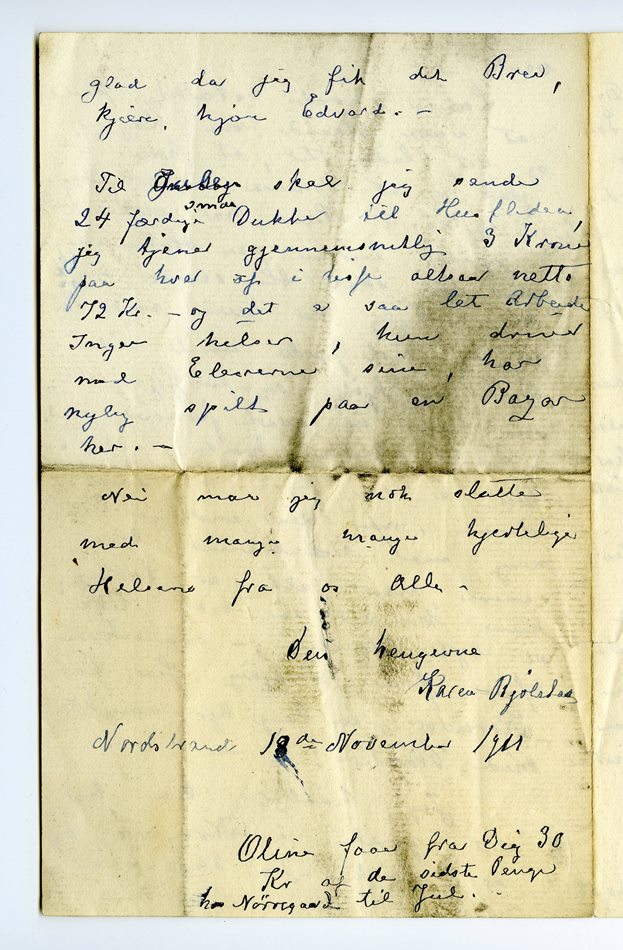 glad da jeg fik det Brev,
kjære, kjære Edvard. –
Til skal jeg sende
24 færdige smaa Dukker til Husfliden,
jeg tjener gjennemsnitlig 3 Kroner
paa hver af disse altsaa netto
72 Kr. – og det e saa let Arbeide
Inger hilser, hun driver
med Eleverne sine, har
nylig spilt paa en Bazar
her. –
Nei maa jeg nok slutte
med mange mange hjertelige
Hilsener fra os Alle –
Din hengivne
Karen Bjølstad
Nordstrand 18de November 1911
Oline faar fra Dig 30
Kr af de sidste Penge
hos Nørregaard til Jul.